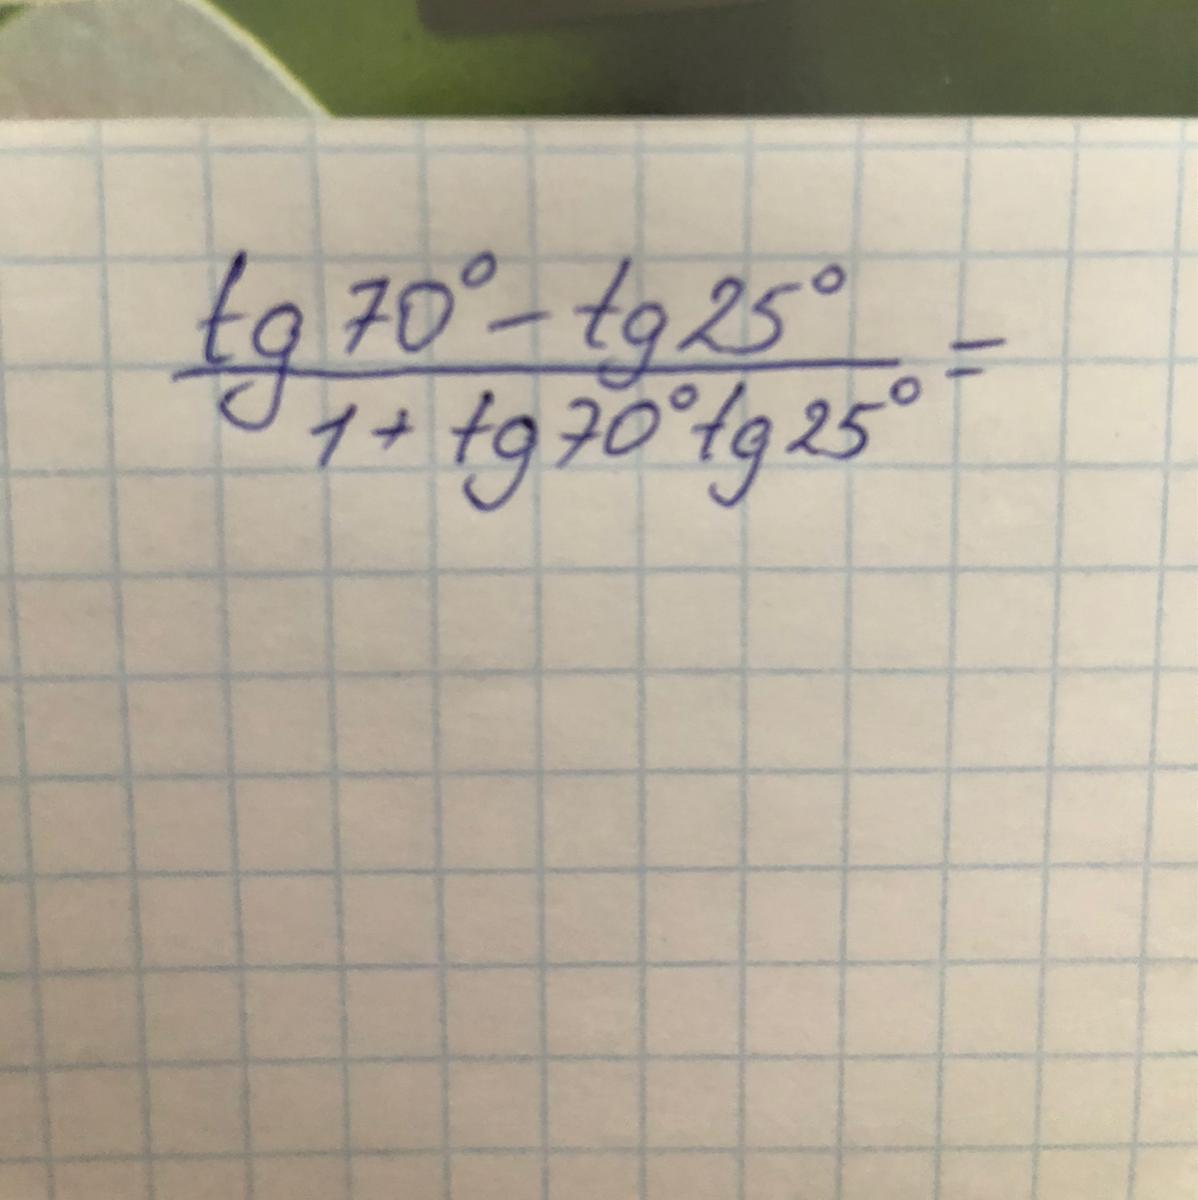 tg 70° - tg 25° =
1 + tg 70° tg 25°